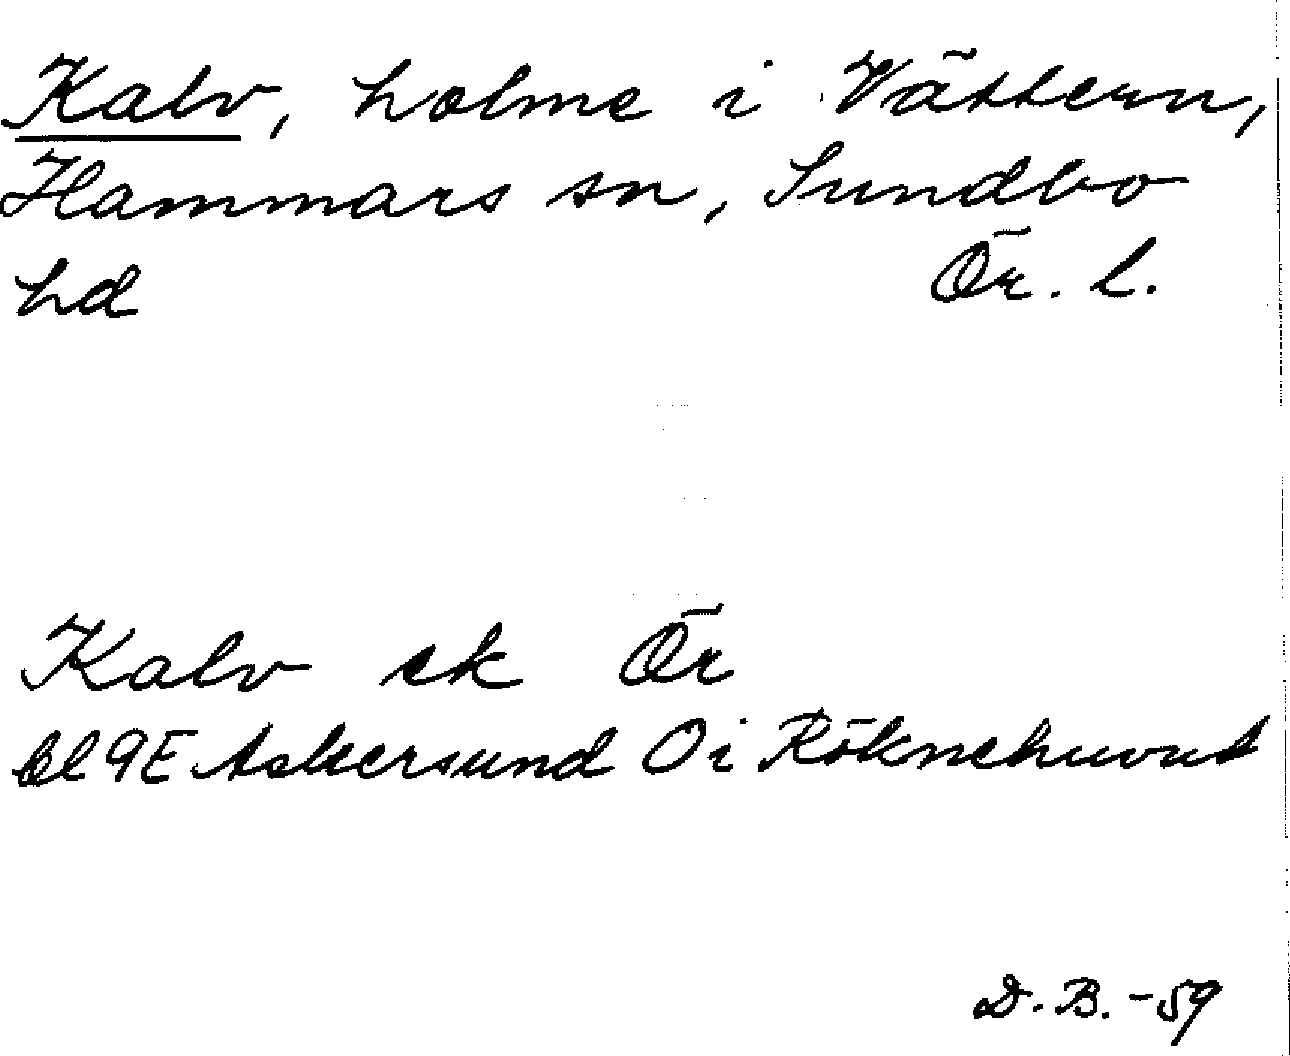 Kalv, holme i Vättern,
Hammars sn, Sundbo
hd Ör. l.
Kalv ek Ör
Bl 9E Askersund Oi Röknehuvud
D. B. -59